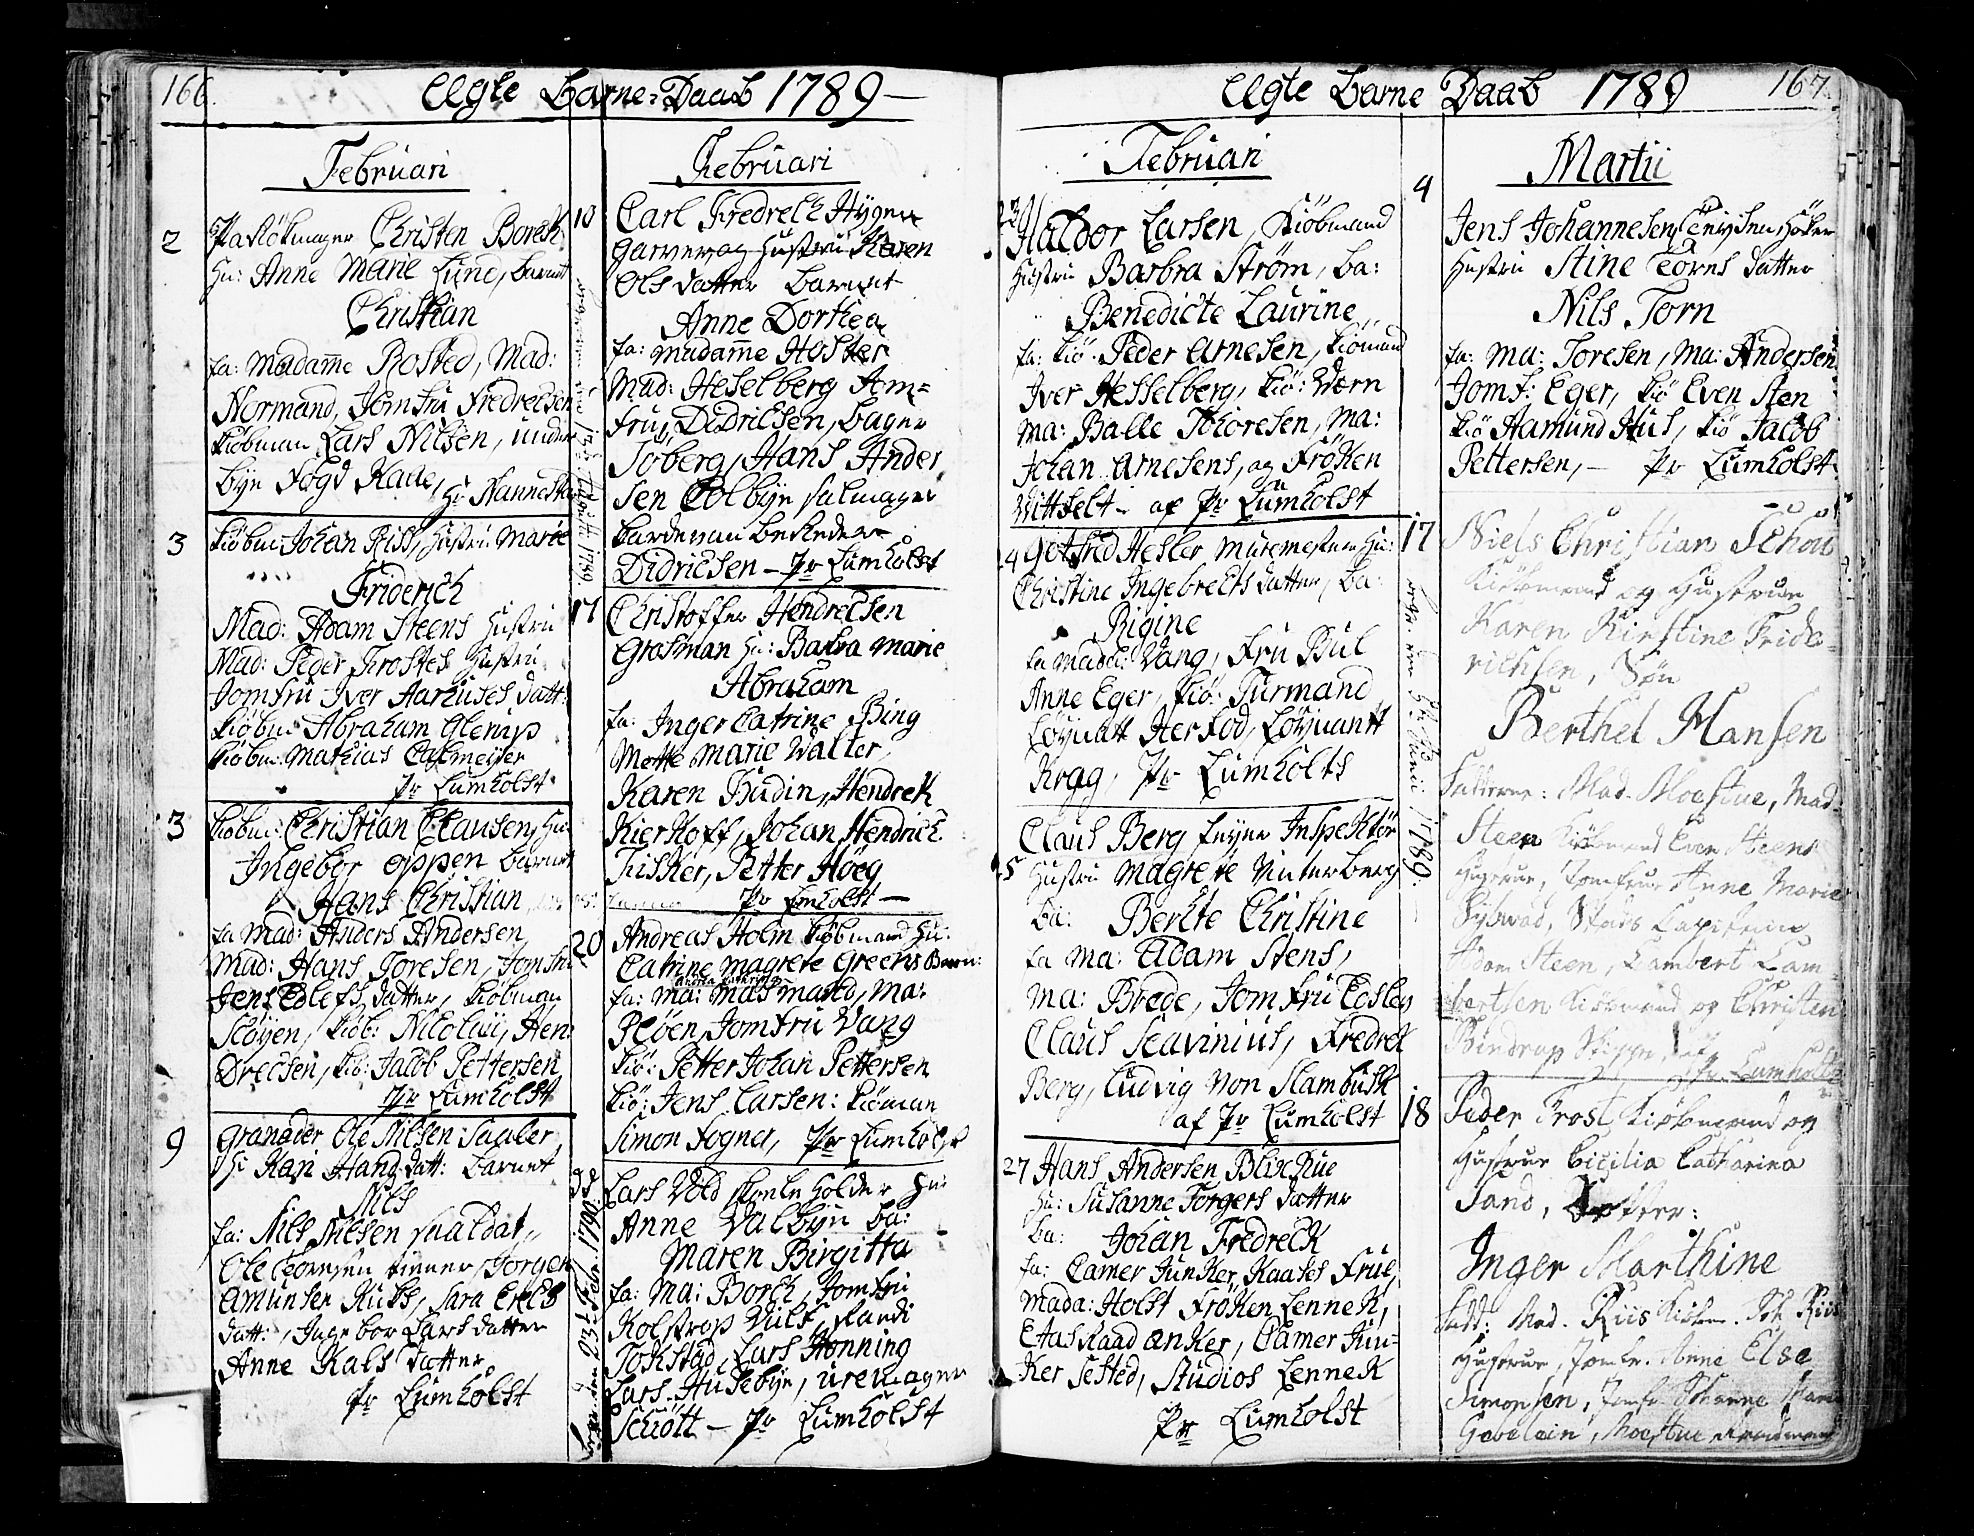 166.
Elgte Barne-Daab 1789 —
Februari
2
Christen Borck
Hu: Anne Marie Lund, barnet
Christian
fa: Madame Rosted, Mad:
Normand, Jomfru Fredrecsen
kiøbman Lars Nilsen, under
byn fogd Raae,
Hr Nannestad
3
kiøbm: Johan Riss, hustru Marie
Friderich
Mad: Adam Steens hustru
Mad: Peder Frostes hustru
Jomfru Iver Aarhuses datt:
kiøbm: Abraham Glerup
kiøbm: Mathias
Pr Lumholst
3
kiøbm: Christian Clausen, Hu:
Ingebor Oppen barnet
Hans Christian
fa Mad: Anders Andersen
Mad: Hans Toresen, Jomfru
Jens Edlefs datter, kiøbman
Sløyen, kiøb: Nicolai Hen:
Drecsen, kiø: Jacob Pettersen
Pr Lumholst
9
Granader Ole Nilsen Saaler,
Hu Kari Hans datt: barnet
Nils
fa: Nils Nilsen sualdat,
Ole Torresen tienner, Jorgen
Amunsen Ruts, Sara Erics
datt:, Ingebor Lars datter
Anne Kals datter
Pr Lumholst
Februari
10
Carl Fredrech Hygen
garver og hustru Karen
Ols datter barnet
Anne Dorthea
fa: madame Hoster
Mad: Heselberg Jom=
fru Didricsen, bager
Søberg, Hans Ander
sen Colbyn salmager
Didricsen — Pr Lumholst
17
Christoffer Hendrecsen
Grosman Hu: Barbra Marie
Abraham
fa: Inger Catrine Bing
Mette Marie Walter,
Karen Budin, Hendrek
Kierkoff, Johan Hendrich
Fisker, Petter Höeg
Pr Lmholst —
20
Andreas Holm kiøbmand Hu:
Catrine Magrete Greens Barn:
Andrea Cathrine
fa: Ma: Masmand, Ma:
Pløen, Jomfru Vang
kiø: Petter Johan Pettersen
kiø: Jens Larsen: kiøman
Simon Fogner, Pr Lumholst
Lars Vold skole holder Hu:
Anne Valbyn ba:
Maren Birgitta
fa: Ma: Borch, Jomfru
Kolstrop
Tokstad, Lars Honning
Lars Husebyn, uremager
Schiött — Pr Lumholst
167.
Elgte Barne Daab 1789
Februari
23
Haldor Larsen, kiøbmand
hustru Barbra Strøm, ba:
Benedicte Laurine
fa: kiø: Peder Arnesen, kiømand
Iver Hesselberg, kiø: Wærn
Ma: Balle Thoresen, Ma:
Johan Arnesens, og Frøken
Wittfelt — af Pr Lumholst
24
Gotfred Hesler muremester Hu:
Christine Ingebrects datter, ba:
Rigine
fa Mada: Vang, Fru Bul
Anne Eger, kiø: Turmand
Løynatt Herfod, Løynantt
Krag, Pr Lumholts
25
Claus Berg Inspektør
hustru Magrete Vinterberg
ba: Berhte Christine
fa Ma: Adam Stens,
Ma: Brede, Jomfru
Claus Scavinius, Fredrek
Berg, Ludvig Von Stambusk
af Pr Lumholst
27
Hans Andersen Blixchue
Hu: Susanne Torgers datter
ba: Johan Fredreck
fa: Camer Junker Kaases Frue,
Mada: Holst Frøken Lennek,
Etas Raad Anker, Camer Jun=
ker Sested, Studios Lennek
Pr Lumholst
Martii
4
Jens Johannesen høker
hustru Stine Torns datter
Nils Torn
fa: Ma: Toresen, Ma: Andersen
Jomf: Eger, kiø Even Sten
kiø Aamund Hus, kiø Jacob
Pettersen, — Pr Lumholst
17
Niels Christian Schou
Kiøbmand og Hustrue
Karen Kirstine Fride=
richsen, Søn
Berthel Hansen
Fadderne: Mad. Moestue, Mad=
Steen Kiøbmand Even Steens
Hustrue, Jomfrue Anne Marie
Sylvad, Stads Capitain
Adam Steen, Lambert Lam=
bertsen Kiøbmand og Christen
Bindrup af
Pr. Lumholtz
18
Peder Frost Kiøbmand og
Hustrue Cicilia Catharina
Sand, Dotter:
Inger Marthine
Fadd: Mad. Riis Kiøbm. Joh. Riis
Hustrue, Jomfr. Anne Else
Simonsen, Jomfr Johanne Marie
Gebelein, Moestue